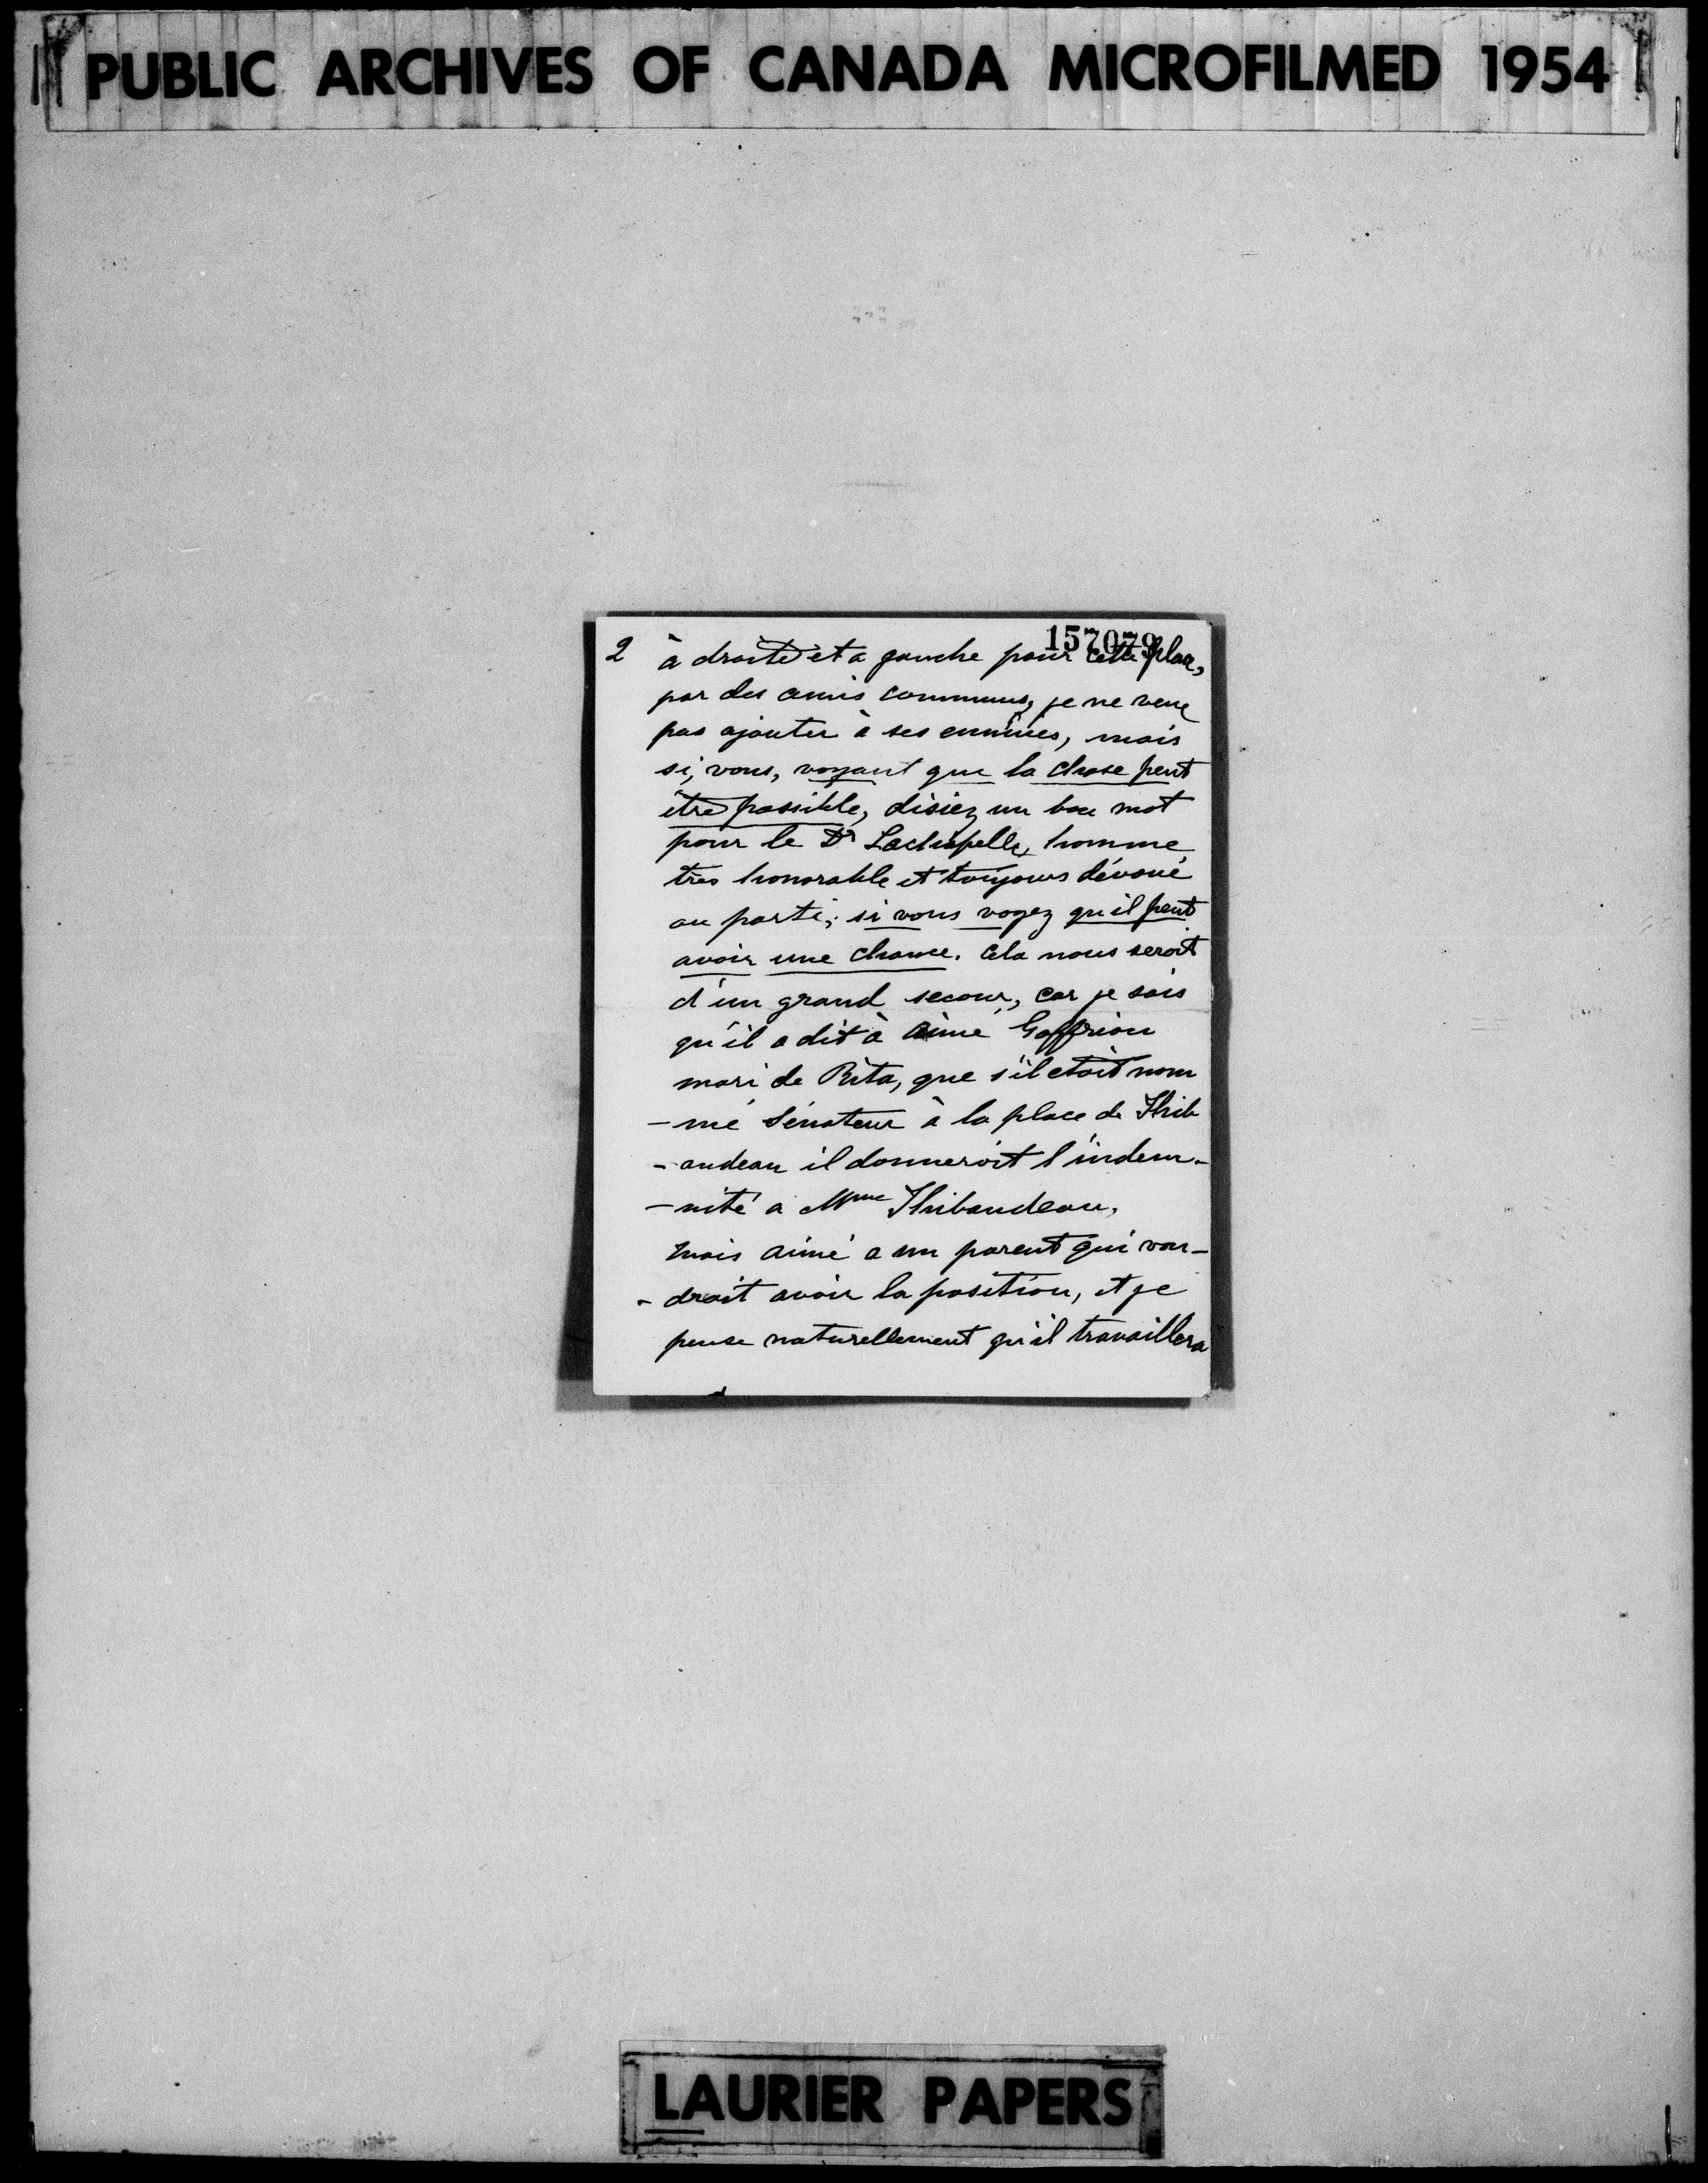 PUBLIC ARCHIVES OF CANADA MICROFILMED 1954
157079
2 à droite et a gauche pour cette place,
par des amis communs, je ne veux
pas ajouter à ses ennuies, mais
si, vous, voyant que la chose peut
être possible, disiez un bon mot
pour le Dr Lachapelle, homme
très honorable et toujours dévoué
au parti, si vous voyez qu'il peut
avoir une chance. Cela nous serait
d'un grand secour, car je sais
qu'il a dit à Aimé Geffrion
mari de Rita, que s'il etait nom
-mé Sénateur à la place de Thib
-audeau il donnerait l'indem-
-nité a Mme Thibaudeau,
Mais Aimé a un parent qui vou-
-drait avoir la position, et je
pense naturellement qu'il travaillera
LAURIER PAPERS